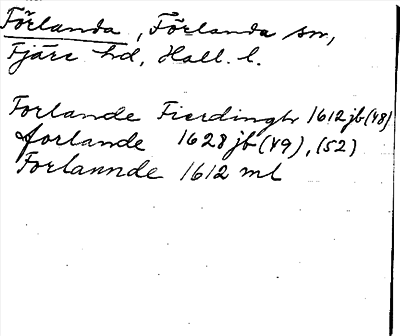 Förlanda, Förlanda sn,
Fjäre hd, Hall. l.
Forlande Fierdingh 1612 jb (48)
forlande 1628 jb (49), (52)
Forlannde 1612 ml